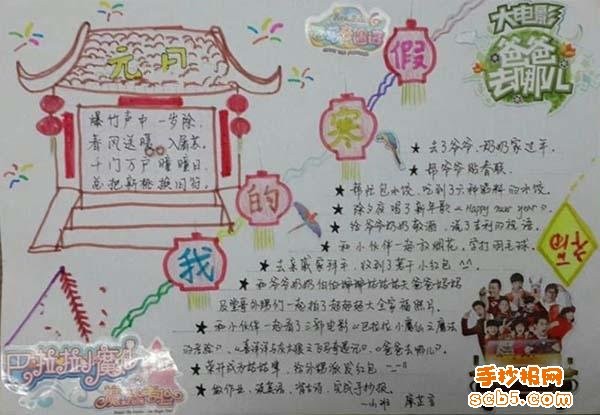 元日
爆竹声中一岁除,
春风送暖入屠苏。
千门万户曈曈日,
总把新桃换旧符。
我的寒假
大电影
爸爸去哪儿
★ 去了爷爷、奶奶家过年。
★ 帮爷爷贴春联
★ 帮忙包水饺,吃到了六种馅料的水饺。
★ 除夕夜唱了新年歌《Happy new year》。
★ 给爷爷奶奶敬酒,说了吉利的祝语。
★ 和小伙伴一起放烟花,学打羽毛球。
★ 去亲戚家拜年,收到了若干小红包 ^_^
★ 和爷爷奶奶伯伯婶婶姑姑姑丈爸爸妈妈
及堂哥外甥们一起拍了
大全家福照片。
★ 和小伙伴一起看了三部电影《巴拉拉小魔仙之魔法
的考验》、《喜羊羊与灰太狼之飞马奇遇记》、《爸爸去哪儿》。
给外甥派发红包
★ 做作业、读英语、背古诗、完成手抄报。
福
巴拉拉小魔仙
手抄报网
scb5.com